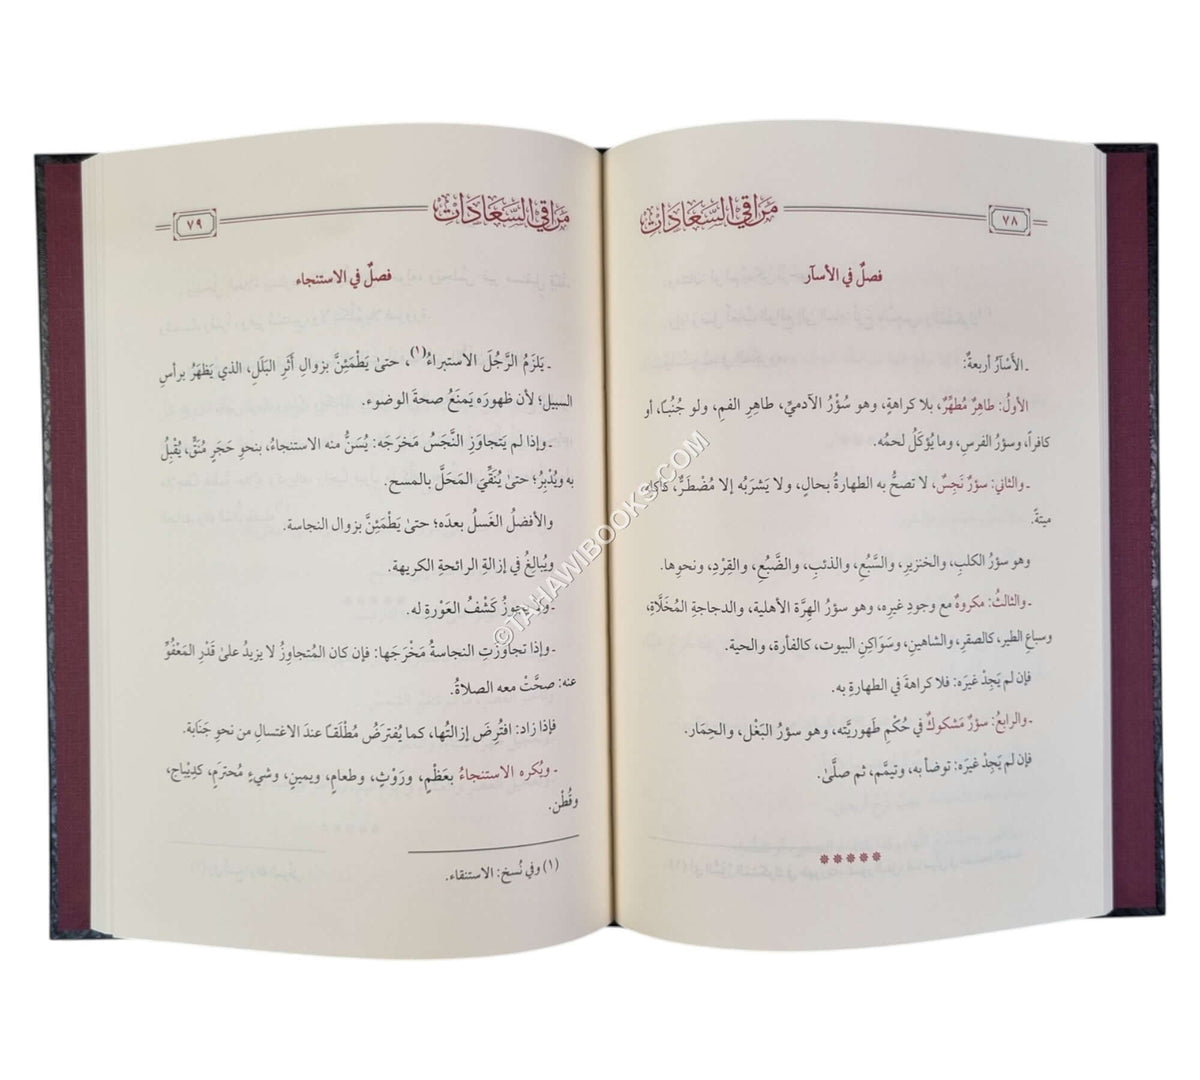 ٧٨
مَرَاقي السَّعَادَاتْ
فصلٌ في الأسآر
ـ الأَسْآرُ أربعةٌ:
الأولُ: طاهِرٌ مُطهِّرٌ، بلا كراهةٍ، وهو سُؤْرُ الآدميِّ، طاهِرِ الفمِ، ولو جُنُبًا، أو
كافراً، وسؤرُ الفرسِ، وما يُؤكَلُ لحمُه.
ـ والثاني: سؤرٌ نَجِسٌ، لا تصحُّ به الطهارةُ بحالٍ، ولا يَشربُه إلا مُضْطَرٌّ، كأكله
ميتةً.
وهو سؤرُ الكلبِ، والخنزيرِ، والسَّبُعِ، والذئبِ، والضَّبُعِ، والقِرْدِ، ونحوِها.
ـ والثالثُ: مكروهٌ مع وجودِ غيرِه، وهو سؤرُ الهِرَّة الأهلية، والدجاجةِ المُخَلَّاةِ،
وسباعِ الطيرِ، كالصقرِ، والشاهينِ، وسَوَاكِنِ البيوت، كالفأرة، والحية.
فإن لم يَجِدْ غيرَه: فلا كراهةَ في الطهارةِ به.
ـ والرابعُ: سؤرٌ مَشكوكٌ في حُكْمِ طَهوريَّته، وهو سؤرُ البَغْل، والحِمَار.
فإن لم يَجِدْ غيرَه: توضأ به، وتيمَّم، ثم صلَّىٰ.
*****
مَرَاقي السَّعَادَاتْ
٧٩
فصلٌ في الاستنجاء
ـ يَلزَمُ الرَّجُلَ الاستبراءُ(١)، حتىٰ يَطْمَئِنَّ بزوالِ أَثَرِ البَلَلِ، الذي يَظهَرُ برأس
السبيل؛ لأن ظهورَه يَمنَعُ صحةَ الوضوء.
ـ وإذا لم يَتجاوَزِ النَّجَسُ مَخرَجَه: يُسَنُّ منه الاستنجاءُ، بنحوِ حَجَرٍ مُنَقٍّ، يُقْبِلُ
به ويُدْبِرُ؛ حتىٰ يُنَقِّيَ المَحَلَّ بالمسح.
والأفضلُ الغَسلُ بعدَه؛ حتىٰ يَطْمَئِنَّ بزوال النجاسة.
ويُبالِغُ في إزالةِ الرائحةِ الكريهة.
ـ ولا يجوزُ كَشْفُ العَوْرةِ له.
ـ وإذا تجاوَزَتِ النجاسةُ مَخْرَجَها: فإن كان المُتجاوِزُ لا يزيدُ علىٰ قَدْرِ المَعْفُوِّ
عنه: صحَّتْ معه الصلاةُ.
فإذا زاد: افتُرِضَ إزالتُها، كما يُفترَضُ مُطْلَقًا عندَ الاغتسالِ من نحوِ جَنَابة.
ـ ويُكره الاستنجاءُ بعَظْمٍ، ورَوْثٍ، وطعامٍ، ويمينٍ، وشيءٍ مُحترَمٍ، كدِيْباج،
وقُطْن.
(١) وفي نُسخ: الاستنقاء.
©TAHAWIBOOKS.COM